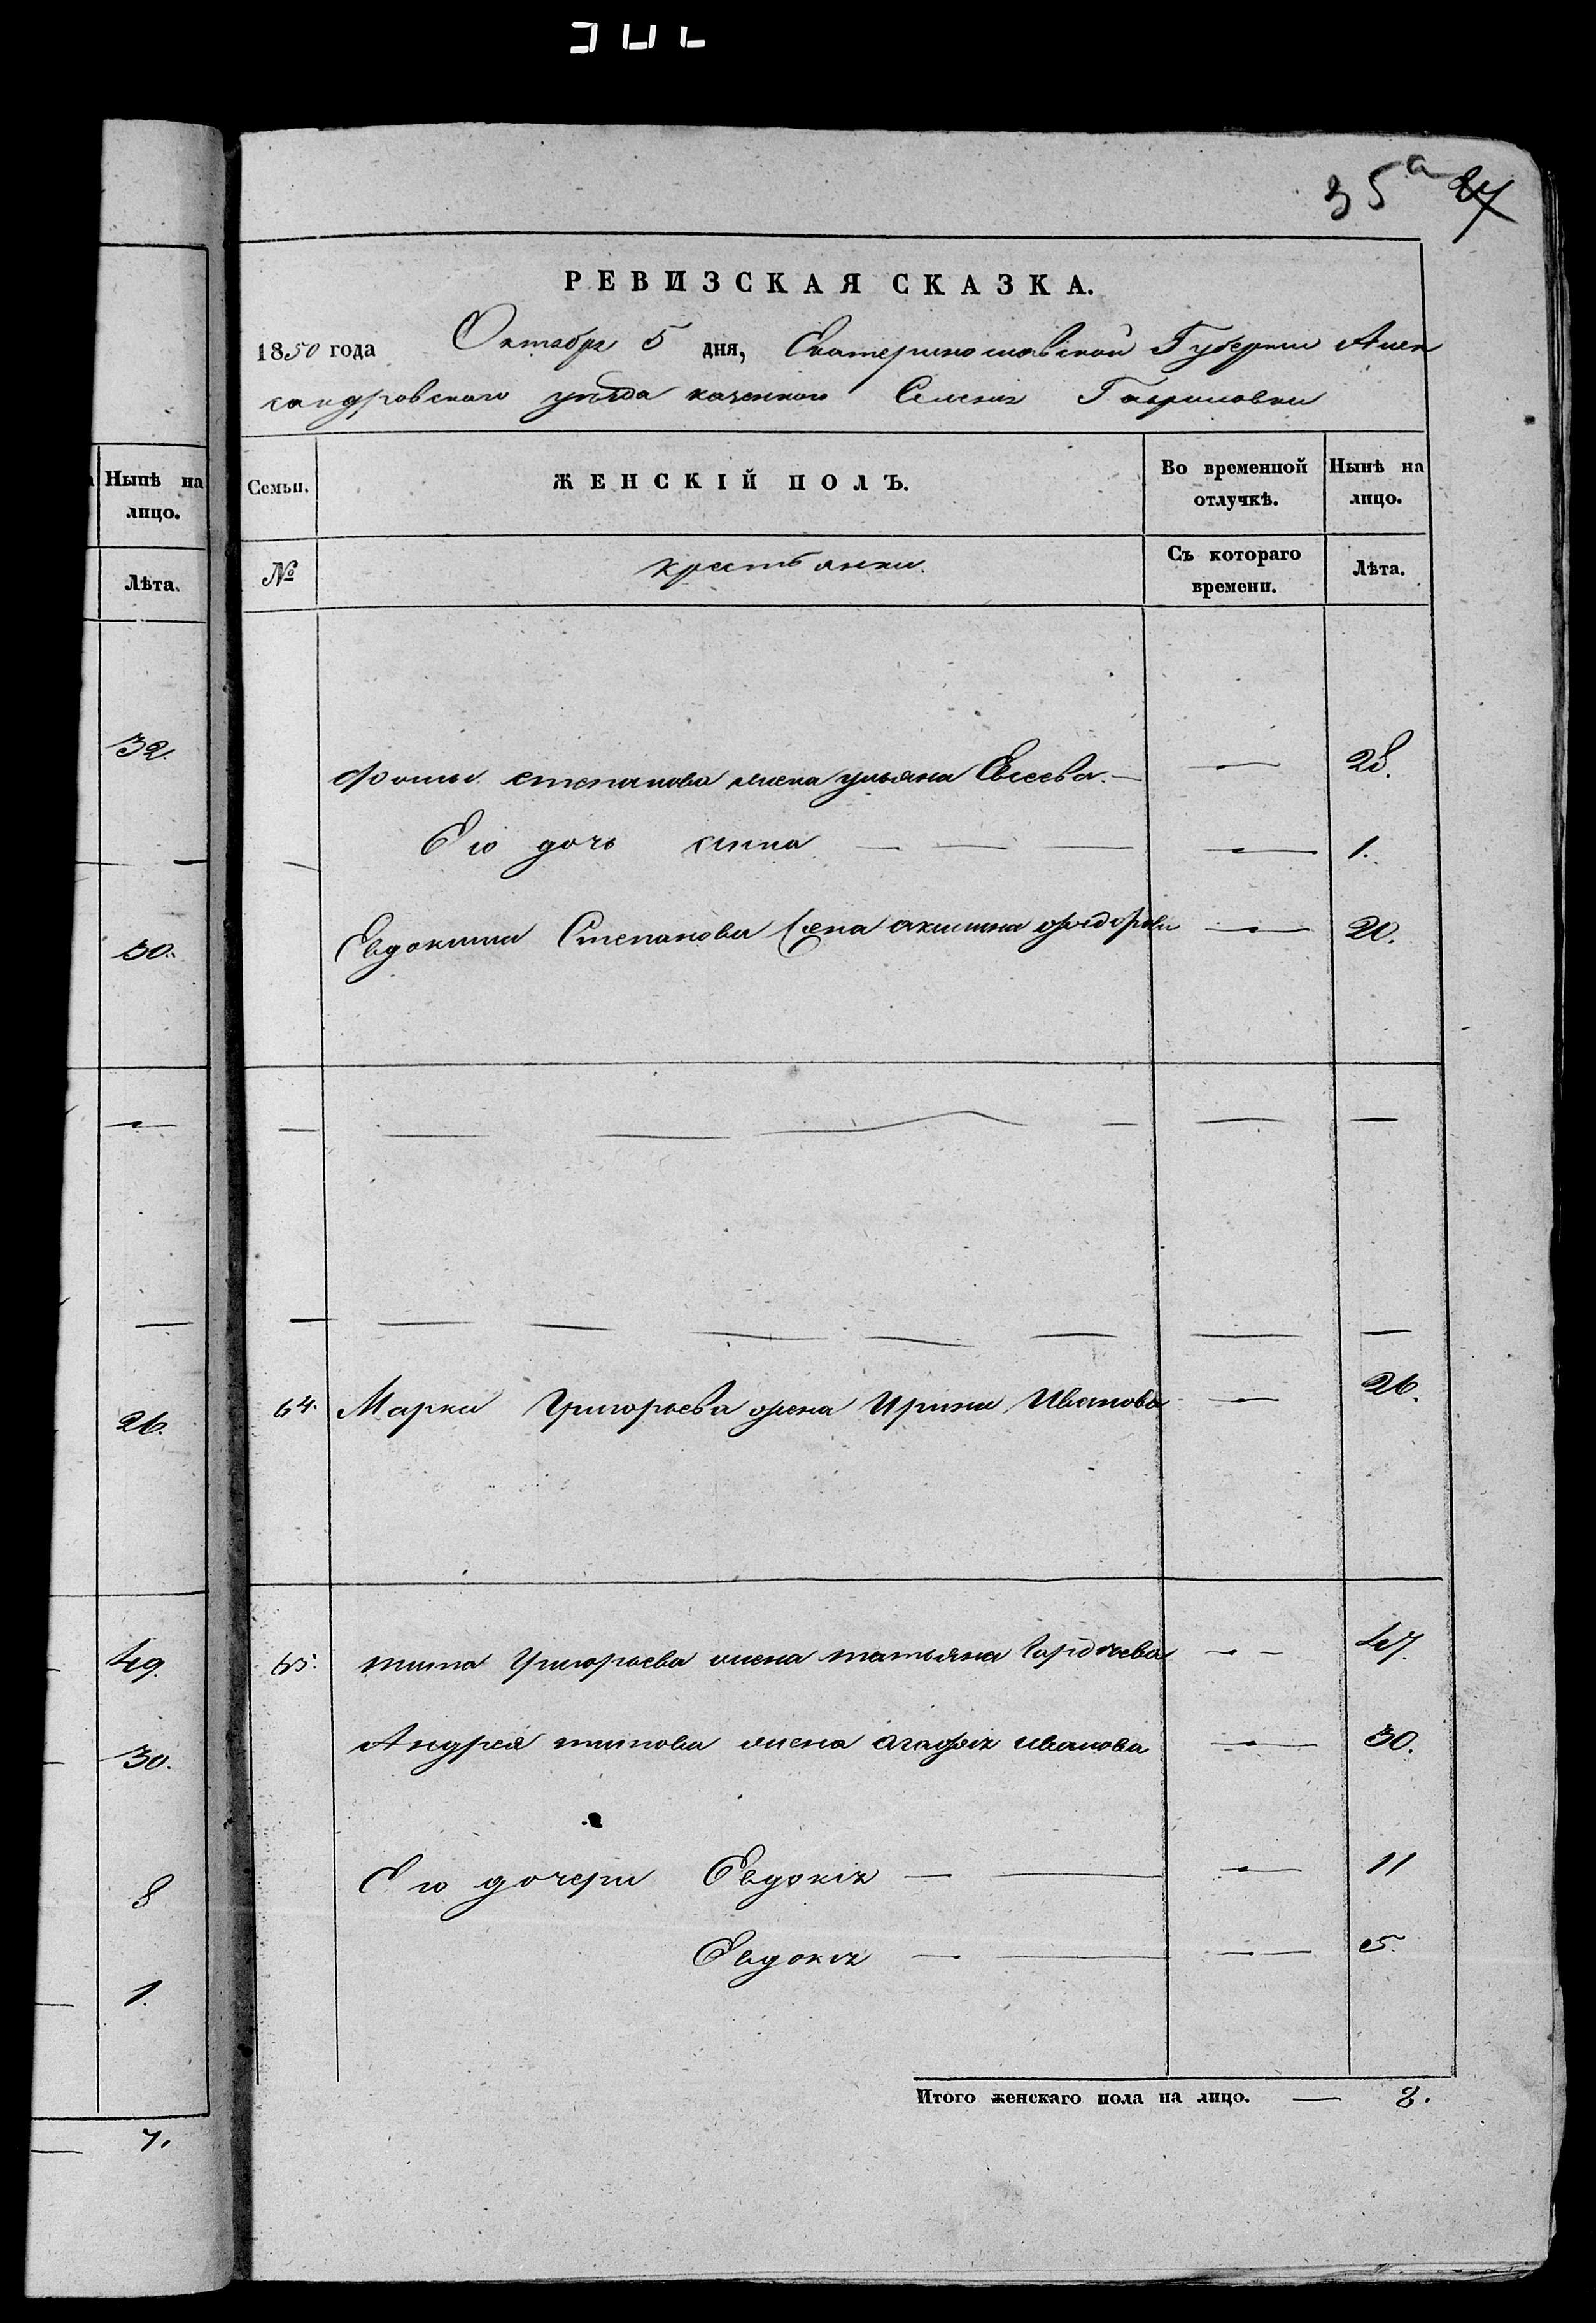 35а 27
РЕВИЗСКАЯ СКАЗКА.
1850 года Октября 5 дня, Екатеринославской Губернии Алек
сандровского уѣзда казенного Селения Гавриловки
Нынѣ на лицо.
Лѣта.
Семьи. ЖЕНСКІЙ ПОЛЪ. Во временной отлучкѣ. Нынѣ на лицо.
№ крестьянки. Съ котораго времени. Лѣта.
32.
Фомы степанова жена ульяна Евсеева. — — 28.
Его дочь анна — — — — 1.
30.
Евдокима Степанова жена акилина — 20.
64. Марка Григорьева жена Ирина Иванова — 26.
26.
65. типа Григорьева жена татьяна Гордѣева — 47.
49.
Андрея типова жена агафия иванова — 30.
30.
Его дочери Евдокия — — — 11
8
Евдокия — — — 5.
1.
Итого женскаго пола на лицо. — 8.
7.